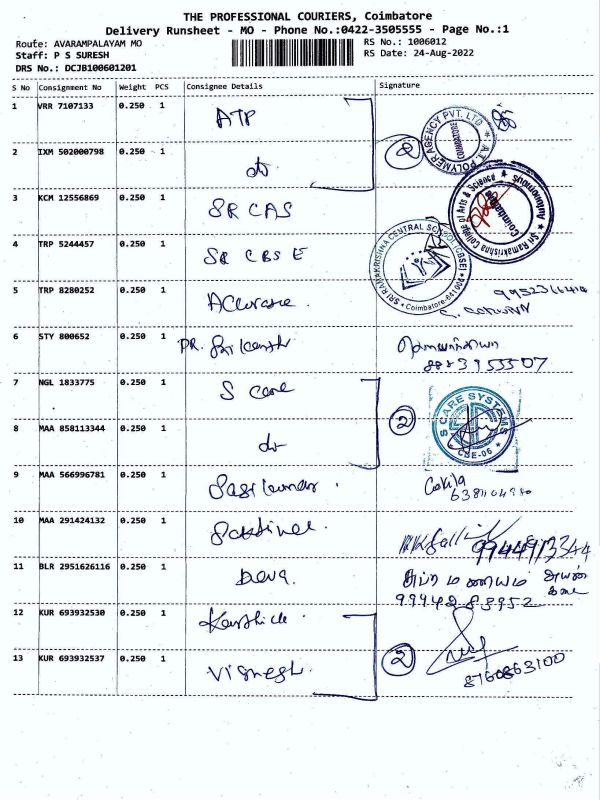 THE PROFESSIONAL COURIERS, Coimbatore
Delivery Runsheet - MO - Phone No.:0422-3505555 - Page No.:1
Route: AVARAMPALAYAM MO RS No.: 1006012
Staff: P S SURESH RS Date: 24-Aug-2022
DRS No.: DCJB100601201
S No Consignment No Weight PCS Consignee Details Signature
1 VRR 7107133 0.250 1 ATP
A.T. POLYMER AGENCY PVT. LTD COIMBATORE
2 IXM 502000798 0.250 1 do 2
3 KCM 12556869 0.250 1 SRCAS
Sri Ramakrishna College of Arts & Science Autonomous Coimbatore
4 TRP 5244457 0.250 1 SR CBSE
SRI RAMAKRISHNA CENTRAL SCHOOL (CBSE) Coimbatore-641
5 TRP 8280252 0.250 1 Accurate
6 STY 800652 0.250 1 PR. Srikanth
8883955507
7 NGL 1833775 0.250 1 S care
S CARE SYSTEMS CBE-06
8 MAA 858113344 0.250 1 do 2
9 MAA 566996781 0.250 1 Sasikumar Cokila
10 MAA 291424132 0.250 1 Sakthivel
9944913344
11 BLR 2951626116 0.250 1 Deva
9994283952
12 KUR 693932530 0.250 1 Karthick
13 KUR 693932537 0.250 1 Vignesh 2
8760863100